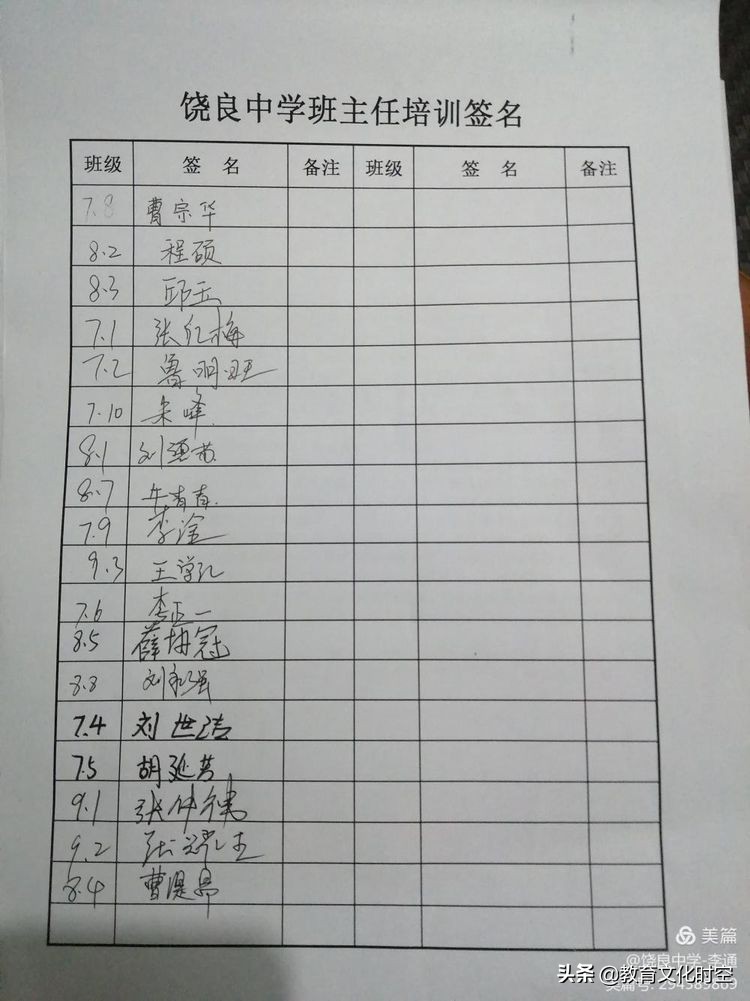 饶良中学班主任培训签名
班级 签 名 备注 班级 签 名 备注
7.8 曹宗华
8.2 程硕
8.3 邱玉
7.1 张红梅
7.2 鲁明旺
7.10 朱峰
8.1 刘
8.7 牛青春
7.9 李淦
9.3 王学
7.6 李正一
8.5 薛坤冠
8.8 刘永强
7.4 刘世洁
7.5 胡延芳
9.1 张仲
9.2 张
8.4 曹
美篇
@饶良中学-李通
头条 @教育文化时空
美篇号: 294589869